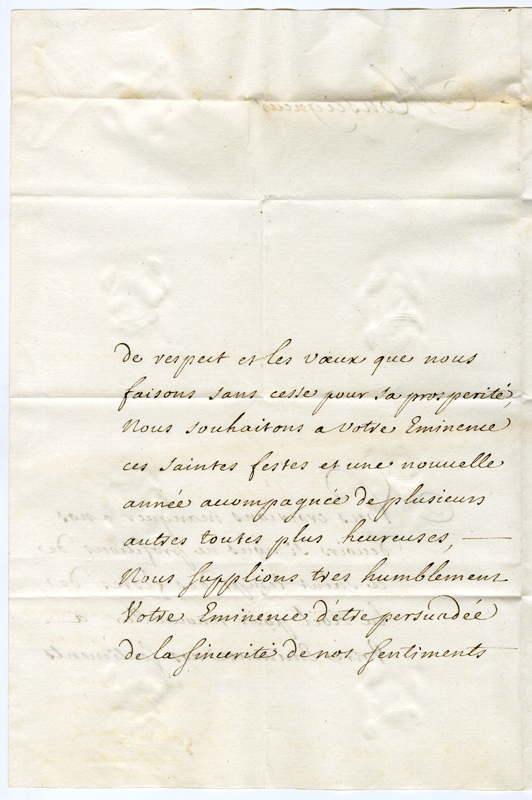 de respect et les vœux que nous
faisons sans cesse pour sa prosperité,
Nous souhaitons a Votre Eminence
ces saintes festes et une nouvelle
année accompagnée de plusieurs
autres toutes plus heureuses,
Nous supplions tres humblement
Votre Eminence d'être persuadée
de la sincerité de nos sentiments